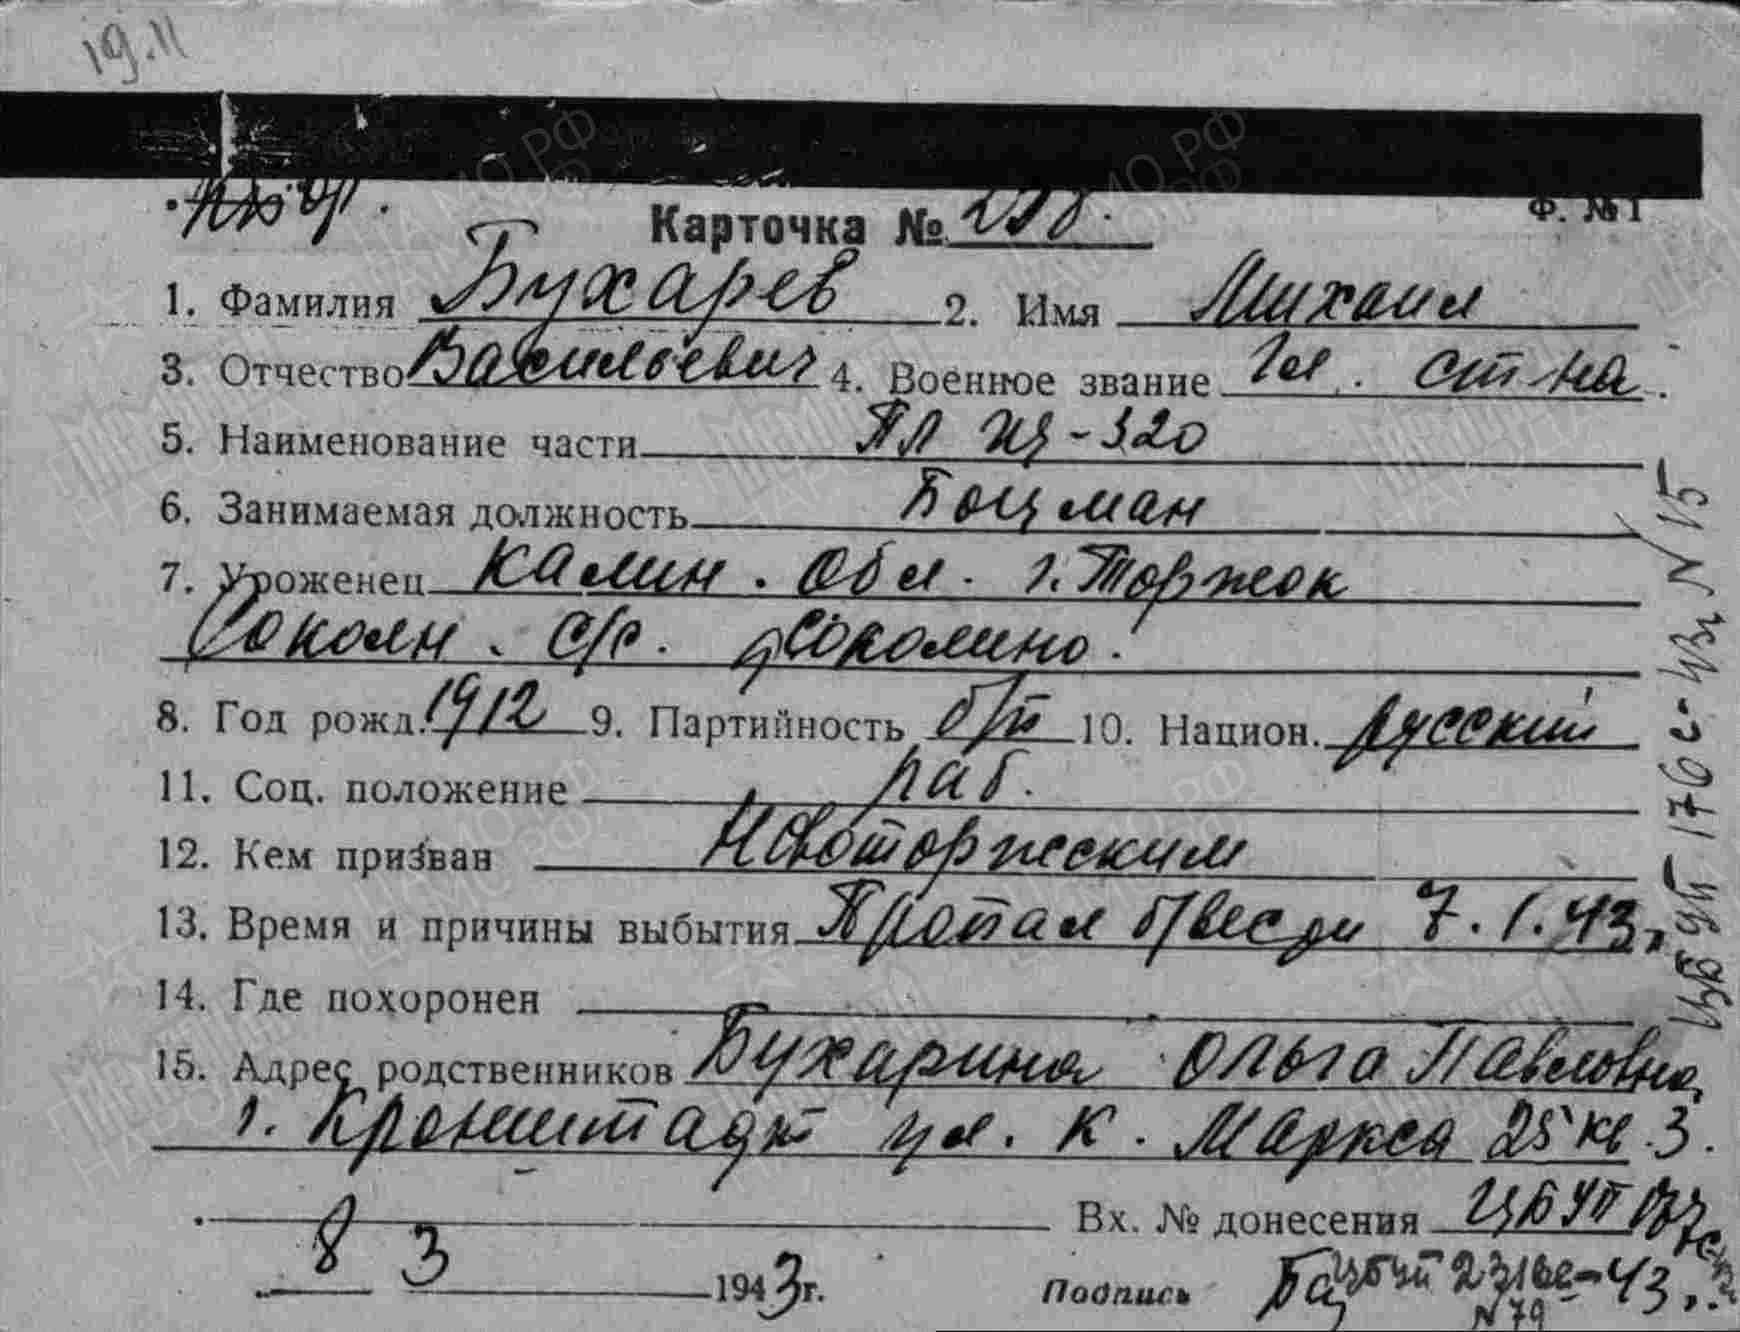 19.11
Ф. № 1
Карточка №
1. Фамилия Бухарев 2. Имя Михаил
3. Отчество Васильевич 4. Военное звание Гл. ст-на.
5. Наименование части ПЛ Щ-320
6. Занимаемая должность Боцман
7. Уроженец Калин. Обл. г. Торжок
Соколн. с/с. д. Соколино.
8. Год рожд. 1912 9. Партийность б/п 10. Национ. русский
11. Соц. положение раб.
12. Кем призван Новоторжским
13. Время и причины выбытия Пропал б/вести 7.1.43г.
14. Где похоронен
15. Адрес родственников Бухарина Ольга Павловна
г. Кронштадт ул. К. Маркса 25 кв. 3.
Вх. № донесения ЦБУП
8 3 1943г. Подпись
ЦБУП 231сс-43г.
N 79
ЦБУП 176с-43г N 15